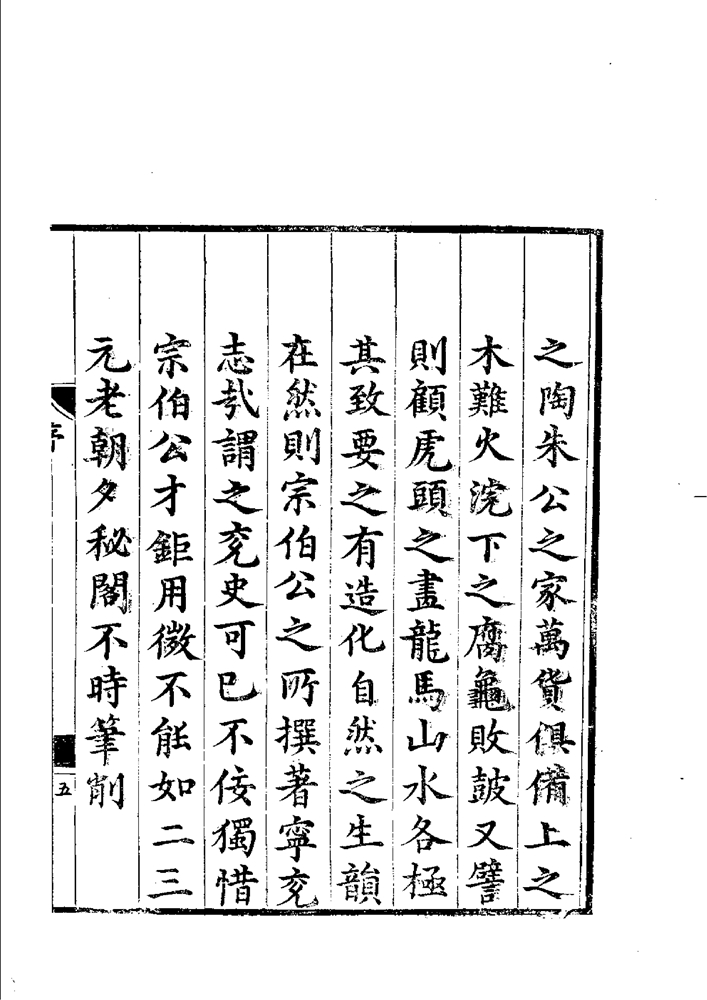 之陶朱公之家萬貨俱備上之
木難火浣下之腐龜敗鼓又譬
則顧虎頭之畫龍馬山水各極
其致要之有造化自然之生韻
在然則宗伯公之所撰著寧兖
志㢤謂之兖史可已不佞獨惜
宗伯公才鉅用微不能如二三
元老朝夕秘閣不時筆削
序
五